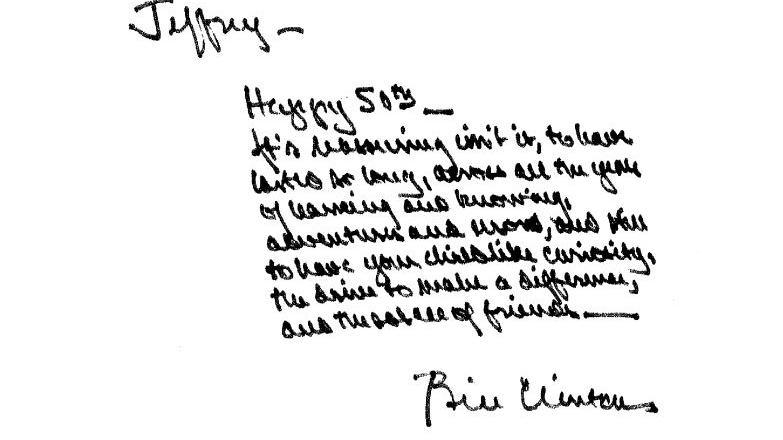 Jeffrey –
Happy 50th –
It's reassuring isn't it, to have
lasted as long, across all the years
of learning and knowing,
adventures and, and still
to have your childlike curiosity,
the drive to make a difference,
and the solace of friends. —
Bill Clinton